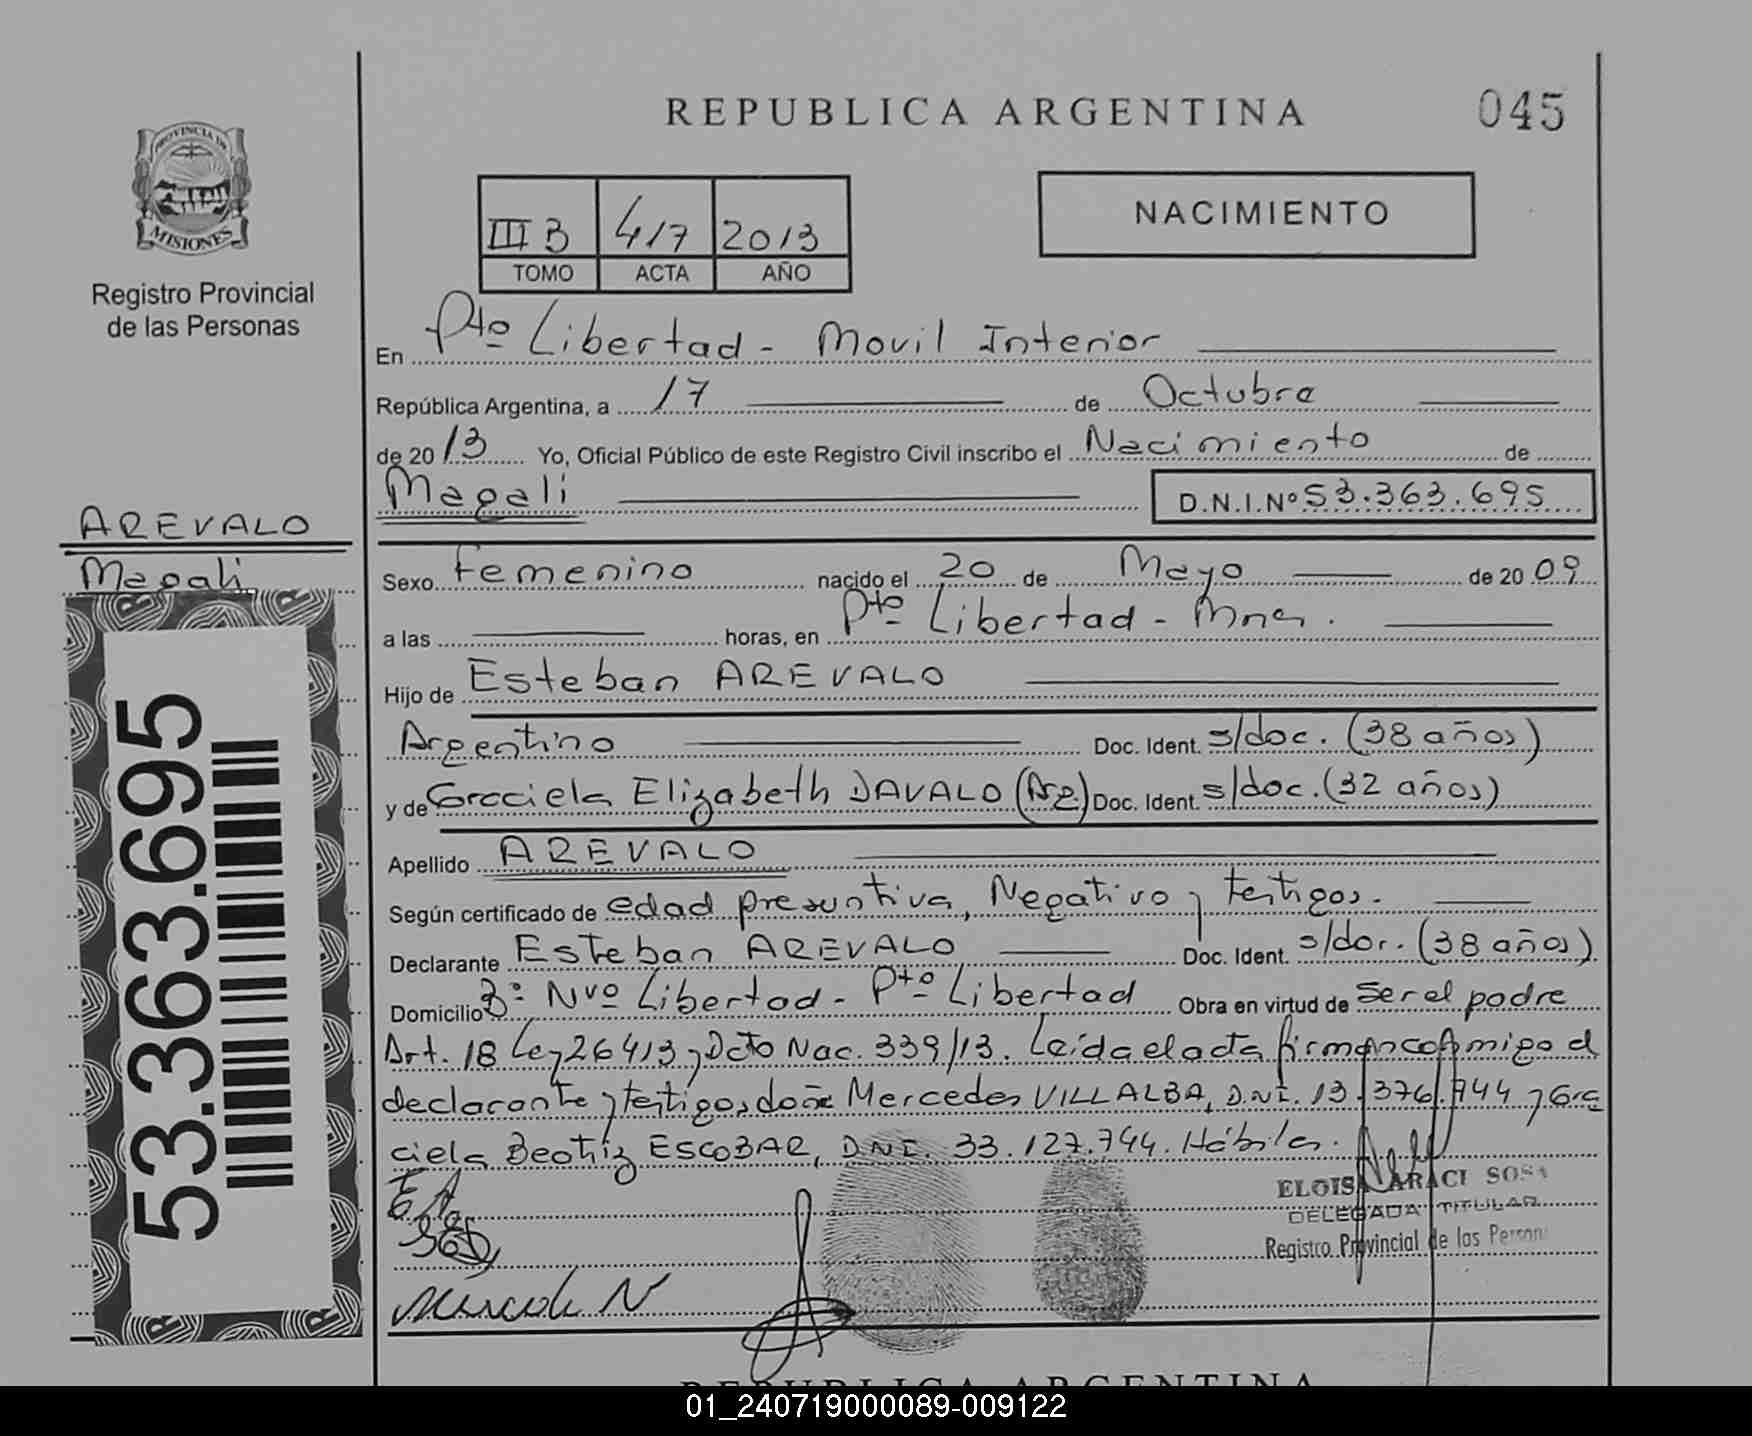 REPUBLICA ARGENTINA
045
PROVINCIA DE
MISIONES
Registro Provincial
de las Personas
III B 417 2013
TOMO ACTA AÑO
NACIMIENTO
En Pto Libertad - Movil Interior
República Argentina, a 17 de Octubre
de 2013 Yo, Oficial Público de este Registro Civil inscribo el Nacimiento de
Magali D.N.I.Nº 53.363.695
AREVALO
Magali
53.363.695
Sexo Femenino nacido el 20 de Mayo de 2009
a las horas, en Pto Libertad - Mnes.
Hijo de Esteban AREVALO
Argentino Doc. Ident. s/doc. (38 años)
y de Graciela Elizabeth DAVALO (Arg) Doc. Ident. s/doc. (32 años)
Apellido AREVALO
Según certificado de edad presuntiva, Negativo y testigos.
Declarante Esteban AREVALO Doc. Ident. s/doc. (38 años)
Domicilio Bº Nvo Libertad - Pto Libertad Obra en virtud de ser el padre
Art. 18 Ley 26413 y Dcto Nac. 339/13. Leída el acta firman conmigo el
declarante y testigos, doña Mercedes VILLALBA, D.N.I. 13.376.944 y Gra
ciela Beatriz ESCOBAR, D.N.I. 33.127.744. Hábiles.
E A
ELOISA ARACI SOSA
DELEGADA TITULAR
Registro Provincial de las Person
REPUBLICA ARGENTINA
01_240719000089-009122